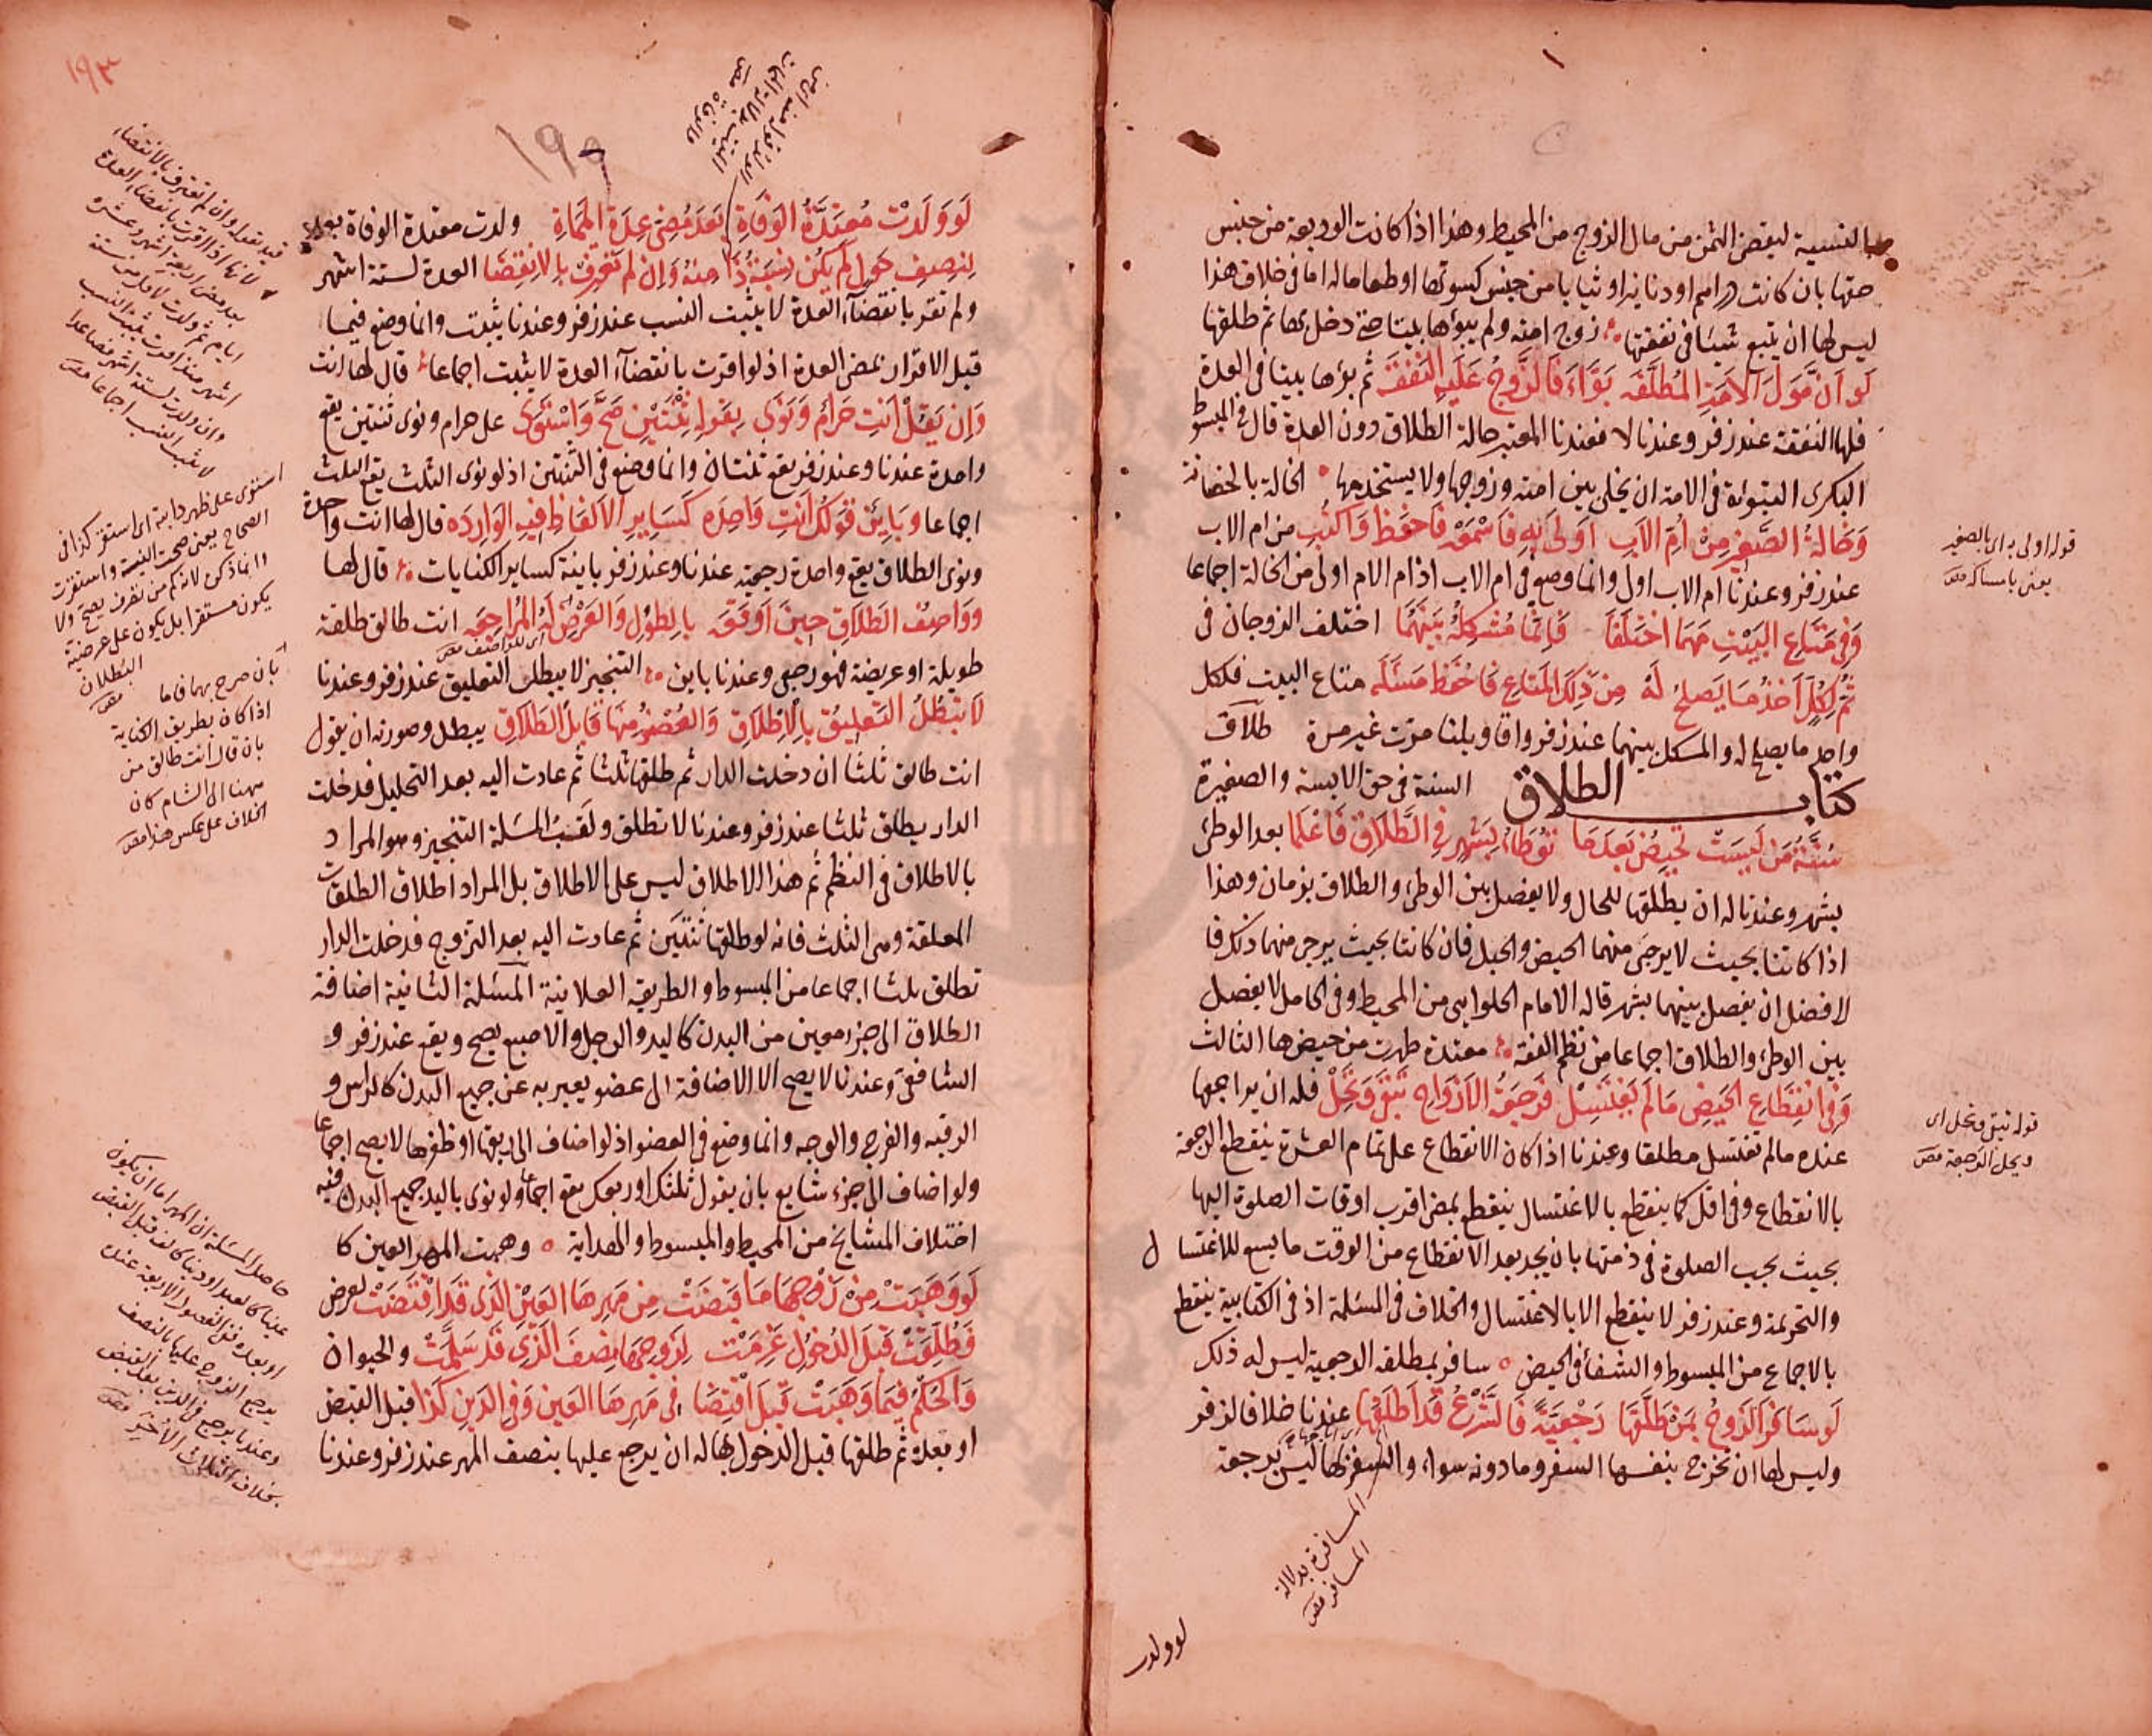 بالنسية ليقضى الثمن من مال الزوج من المحيط وهذا اذا كانت الوديعة من جنس
حقها بان كانت دراهم او دنانير او ثيابا من جنس كسوتها او طعاما له اما فى خلاف هذا
ليس لها ان يتبع شيئا فى نفقتها زوج امته ولم يبوؤها بيتا حتى دخل بها ثم طلقها
لو ان مولى الامة المطلقه بوّاء فالزوج عليه النفقه ثم بوّها بيتا فى العدة
فلها النفقة عند زفر وعندنا لا فعندنا المعتبر حالة الطلاق دون العدة قال فى المبسوط
البكرى التبوئة فى الامة ان يخلى بين امته وزوجها ولا يستخدمها الخالة بالحضانة
وخالة الصغير من ام الاب اولى به فاسمعه فاحفظ واكتب من ام الاب
عند زفر وعندنا ام الاب اولى وانما وضع فى ام الاب اذ ام الام اولى من الخالة اجماعا
وفى متاع البيت مهما اختلفا فانما مشكله بينهما اختلف الزوجان فى
ثم لكل اخذ ما يصلح له من ذلك المتاع فاحفظ مسئله متاع البيت فلكل
واحد ما يصلح له والمشكل بينهما عند زفر واقاويلنا مرت غير مرة طلاق
كتاب الطلاق السنة فى حق الايسة والصغيرة
سنة من ليست تحيض بعدما توطاء بشهر فى الطلاق فاعلما بعد الوطئ
بشهر وعندنا له ان يطلقها للحال ولا يفصل بين الوطئ والطلاق بزمان وهذا
اذا كانتا بحيث لا يرجى منهما الحيض والحبل فان كانتا بحيث يرجى منهما ذلك فا
لافضل ان يفصل بينهما بشهر قاله الامام الحلوايى من المحيط وفى الكامل لا يفصل
بين الوطئ والطلاق اجماعا من نظم الفقه معتدة طهرت من حيضها الثالث
وفى انقطاع الحيض ما لم تغتسل فرجعة الازواج تبقى وتحل فله ان يراجعها
عنده ما لم تغتسل مطلقا وعندنا اذا كان الانقطاع على تمام العشرة ينقطع الرجعة
بالانقطاع وفى اقل كما ينقطع بالاغتسال ينقطع بمضى اقرب اوقات الصلوة اليها
بحيث يجب الصلوة فى ذمتها بان يجد بعد الانقطاع من الوقت ما يسع للاغتسال
والتحريمة وعند زفر لا ينقطع الا بالاغتسال والخلاف فى المسئلة اذ فى الكتابية ينقطع
بالاجماع من المبسوط والشفأ فى الحيض سافر بمطلقه الرجعية ليس له ذلك
لو سافر الزوج بمن طلقها رجعية فالشرع قد اطلقها عندنا خلافا لزفر
وليس لها ان تخرج بنفسها السفر وما دونه سواء والسفر بها ليس برجعة
المسافرة بدلالة
المسافر
لو ولدت
قوله اولى به اى بالصغير
يعنى بامساكه
قوله تبقى وتحل اى
ويحل الرجعة
١٩٣
لو ولدت معتدة الوفاة بعد مضى عدة الممات ولدت معتدة الوفاة بعد
لنصف حول لم يكن نسبة ذا منه وان لم تعترف بالانقضا العدة لستة اشهر
ولم تقر بانقضآء العدة لا يثبت النسب عند زفر وعندنا يثبت وانما وضع فيما
قبل الاقرار بمضى العدة اذ لو اقرت بانقضآء العدة لا يثبت اجماعا قال لها انت
وان يقل انت حرام ونوى بقوله ثنتين صح واستوى على حرام ونوى ثنتين يقع
واحدة عندنا وعند زفر يقع ثنتان وانما وضع فى الثنتين اذ لو نوى الثلث يقع الثلث
اجماعا وباين قولك انت واحده كساير الالفاظ فيه الوارده قال لها انت واحدة
ونوى الطلاق يقع واحدة رجعية عندنا وعند زفر باينة كساير الكنايات قال لها
وواصف الطلاق حين اوقعه بالطول والعرض له المراجعه انت طالق طلقة
طويلة او عريضة فهو رجعى وعندنا باين التنجيز لا يبطل التعليق عند زفر وعندنا
لا يبطل التعليق بالاطلاق والعضو منها قابل الطلاق يبطل وصورته ان يقول
انت طالق ثلثا ان دخلت الدار ثم طلقها ثلثا ثم عادت اليه بعد التحليل فدخلت
الدار يطلق ثلثا عند زفر وعندنا لا تطلق ولقب المسئلة التنجيز وهو المراد
بالاطلاق فى النظم ثم هذا الاطلاق ليس على الاطلاق بل المراد اطلاق الطلقات
المعلقة وهى الثلث فانه لو طلقها ثنتين ثم عادت اليه بعد التزوج فدخلت الدار
تطلق ثلثا اجماعا من المبسوط والطريقه العلائية المسئلة الثانية اضافة
الطلاق الى جزء معين من البدن كاليد والرجل والاصبع يصح ويقع عند زفر و
الشافعى وعندنا لا يصح الا الاضافة الى عضو يعبر به عن جميع البدن كالراس و
الرقبه والفرج والوجه وانما وضع فى العضو اذ لو اضاف الى ريقها او ظفرها لا يصح اجماعا
ولو اضاف الى جزء شايع بان يقول ثلثك او ربعك يقع اجماعا ولو نوى باليد جميع البدن ففيه
اختلاف المشايخ من المحيط والمبسوط والهداية وهبت المهر العين كا
لو وهبت من زوجها ما قبضت من مهرها العين الذى قد اقتضت لعرض
وطلقت قبل الدخول غرمت لزوجها نصف الذى قد سلمت والحيوان
والحكم فيما وهبت قبل اقتضا فى مهرها العين وفى الدين كذا قبل القبض
او بعده ثم طلقها قبل الدخول بها له ان يرجع عليها بنصف المهر عند زفر وعندنا
استوى على ظهر دابته اى استقر كذا فى
الصحاح يعنى صحت النية واستقرت
يكون مستقرا بل يكون على عرضية
البطلان
بان صرح بهما فاما
اذا كان بطريق الكناية
بان قال انت طالق من
ههنا الى الشام كان
الخلاف على عكس هذا